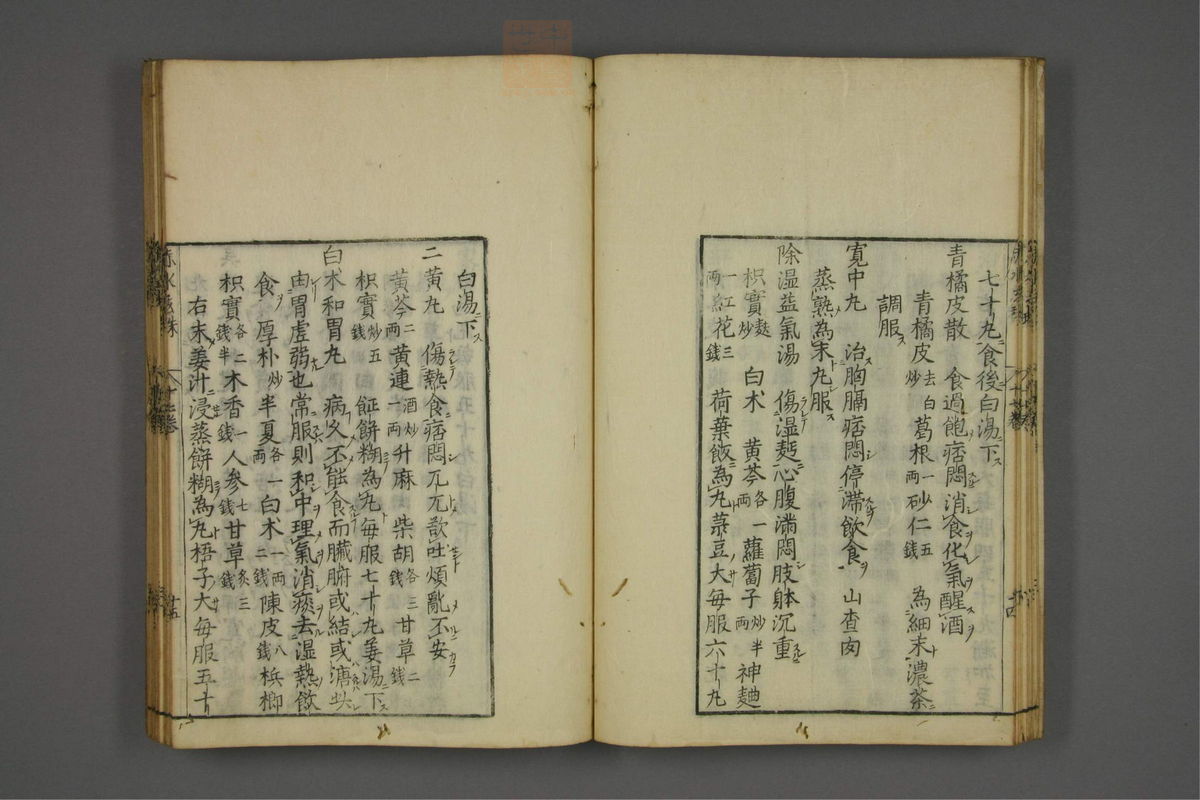 七十丸食後白湯下ス
青橘皮散　食過飽痞悶消食化氣醒酒
青橘皮去白炒葛根一兩砂仁五錢　為細末濃茶
調服ス
寛中丸　治胸膈痞悶停滯飲食山査肉
蒸熟為末丸服ス
除湿益氣湯　傷湿麪心腹滿悶肢躰沉重
枳實麩炒　白朮　黄芩各一兩蘿蔔子炒半兩神麯
一兩紅花三錢　荷葉飯為丸菉豆大毎服六十丸
白湯下ス
二黄丸　傷熱食痞悶兀兀欲吐煩亂不安
黄芩二兩黄連酒炒一兩升麻　柴胡各三錢甘草二錢
枳實炒五錢　飪餅糊為丸毎服七十丸姜湯下ス
白朮和胃丸　病久不能食而臟腑或結或溏此
由胃虚弱也常服則和中理氣消痰去湿熱飲
食厚朴炒半夏各一兩白朮一兩二錢陳皮八錢檳榔
枳實各二錢半木香一錢人参七錢甘草炙三錢
右末姜汁浸蒸餅糊為丸梧子大毎服五十
赤水玄珠
十三巻
廿四
廿五